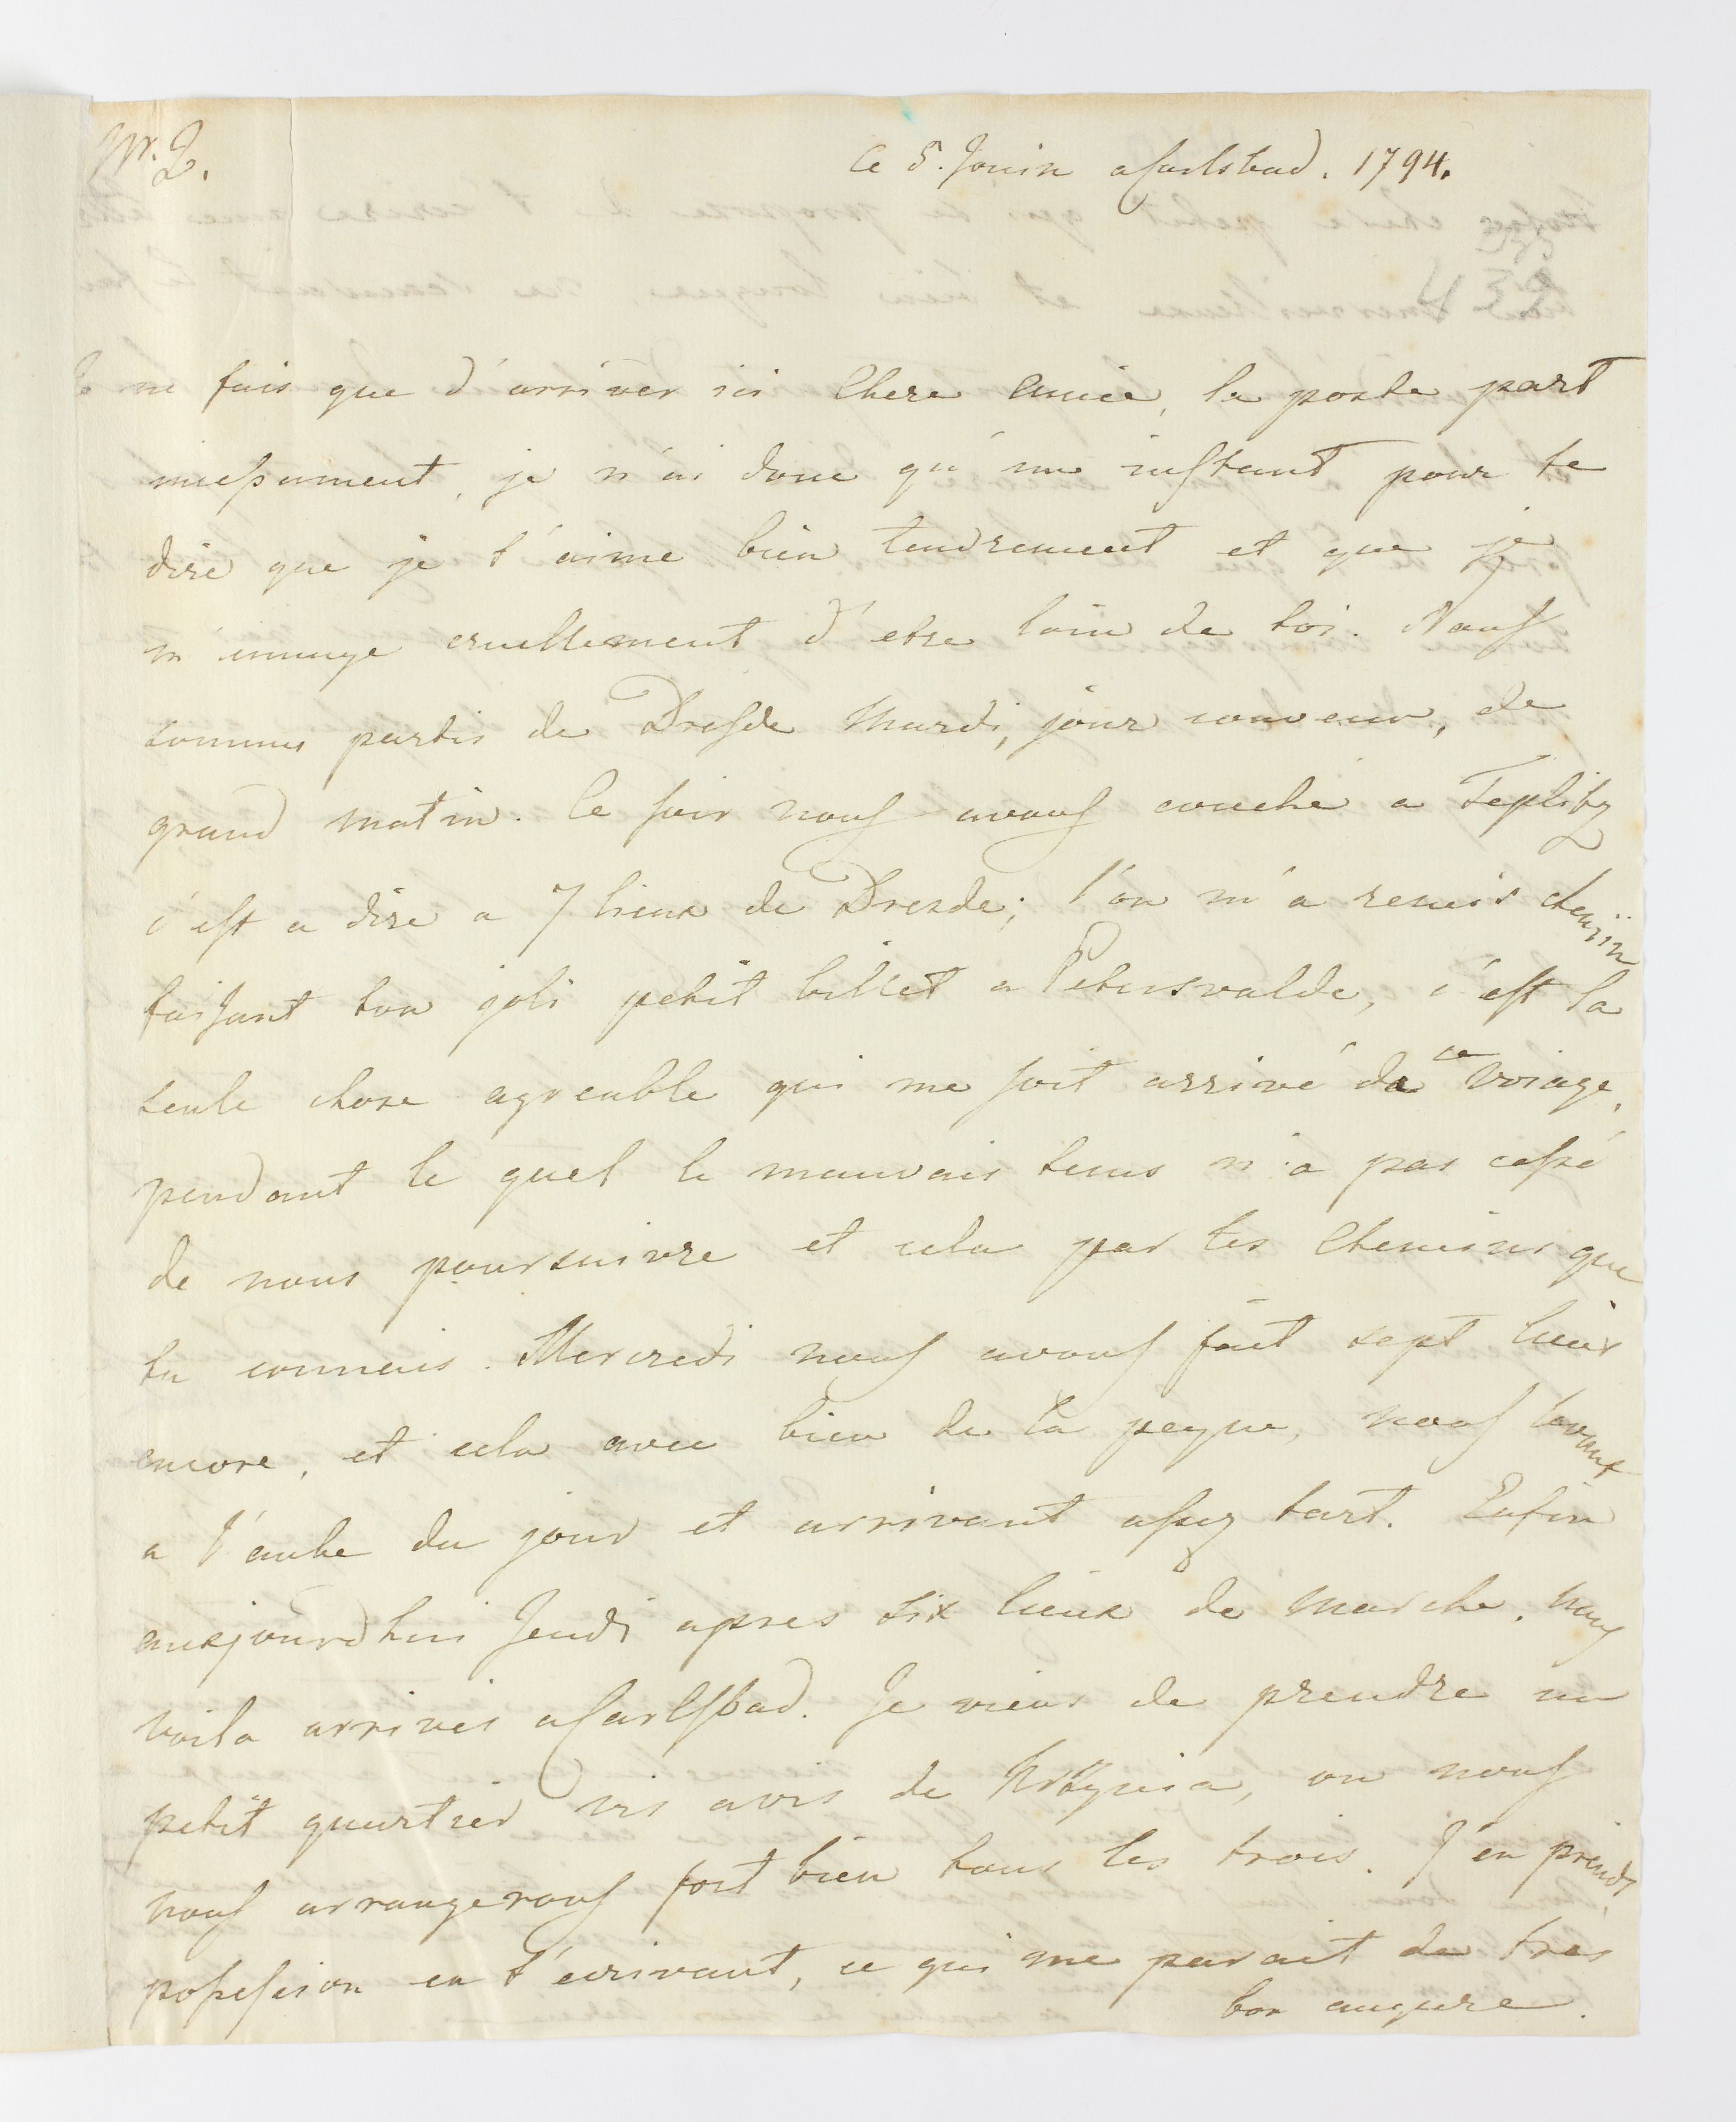 Nr. 2.
Ce 5. Jouin a Carlsbad. 1794.
Je ne fais que d'arriver ici Chere Amie, la poste part
incessament, je n'ai donc qu'un instant pour te
dire que je t'aime bien tendrement et que je
m'ennuye cruellement d'etre loin de toi. Nous
sommes partis de Dresde Mardi, jour convenu, de
grand matin. le soir nous avons couché a Teplitz
c'est a dire a 7 lieux de Dresde; l'on m'a remis chemin
faisant ton joli petit billet a Petersvalde, c'est la
seule chose agreable qui me soit arrivé de ce voiage,
pendant le quel le mauvais tems n'a pas cessé
de nous poursuivre et cela par les Chemins que
tu connais. Mercredi nous avons fait sept lieux
encore, et cela avec bien de la peyne, nous levant
a l'aube du jour et arrivant assez tart. Enfin
aujourdhui Jeudi apres six lieux de marche, nous
voila arrivés a Carlsbad. Je viens de prendre un
petit quartier vis a vis de, ou nous
nous arrangerons fort bien tous les trois. J'en prends
possession en t'ecrivant, ce qui me parait de très
bon augure.